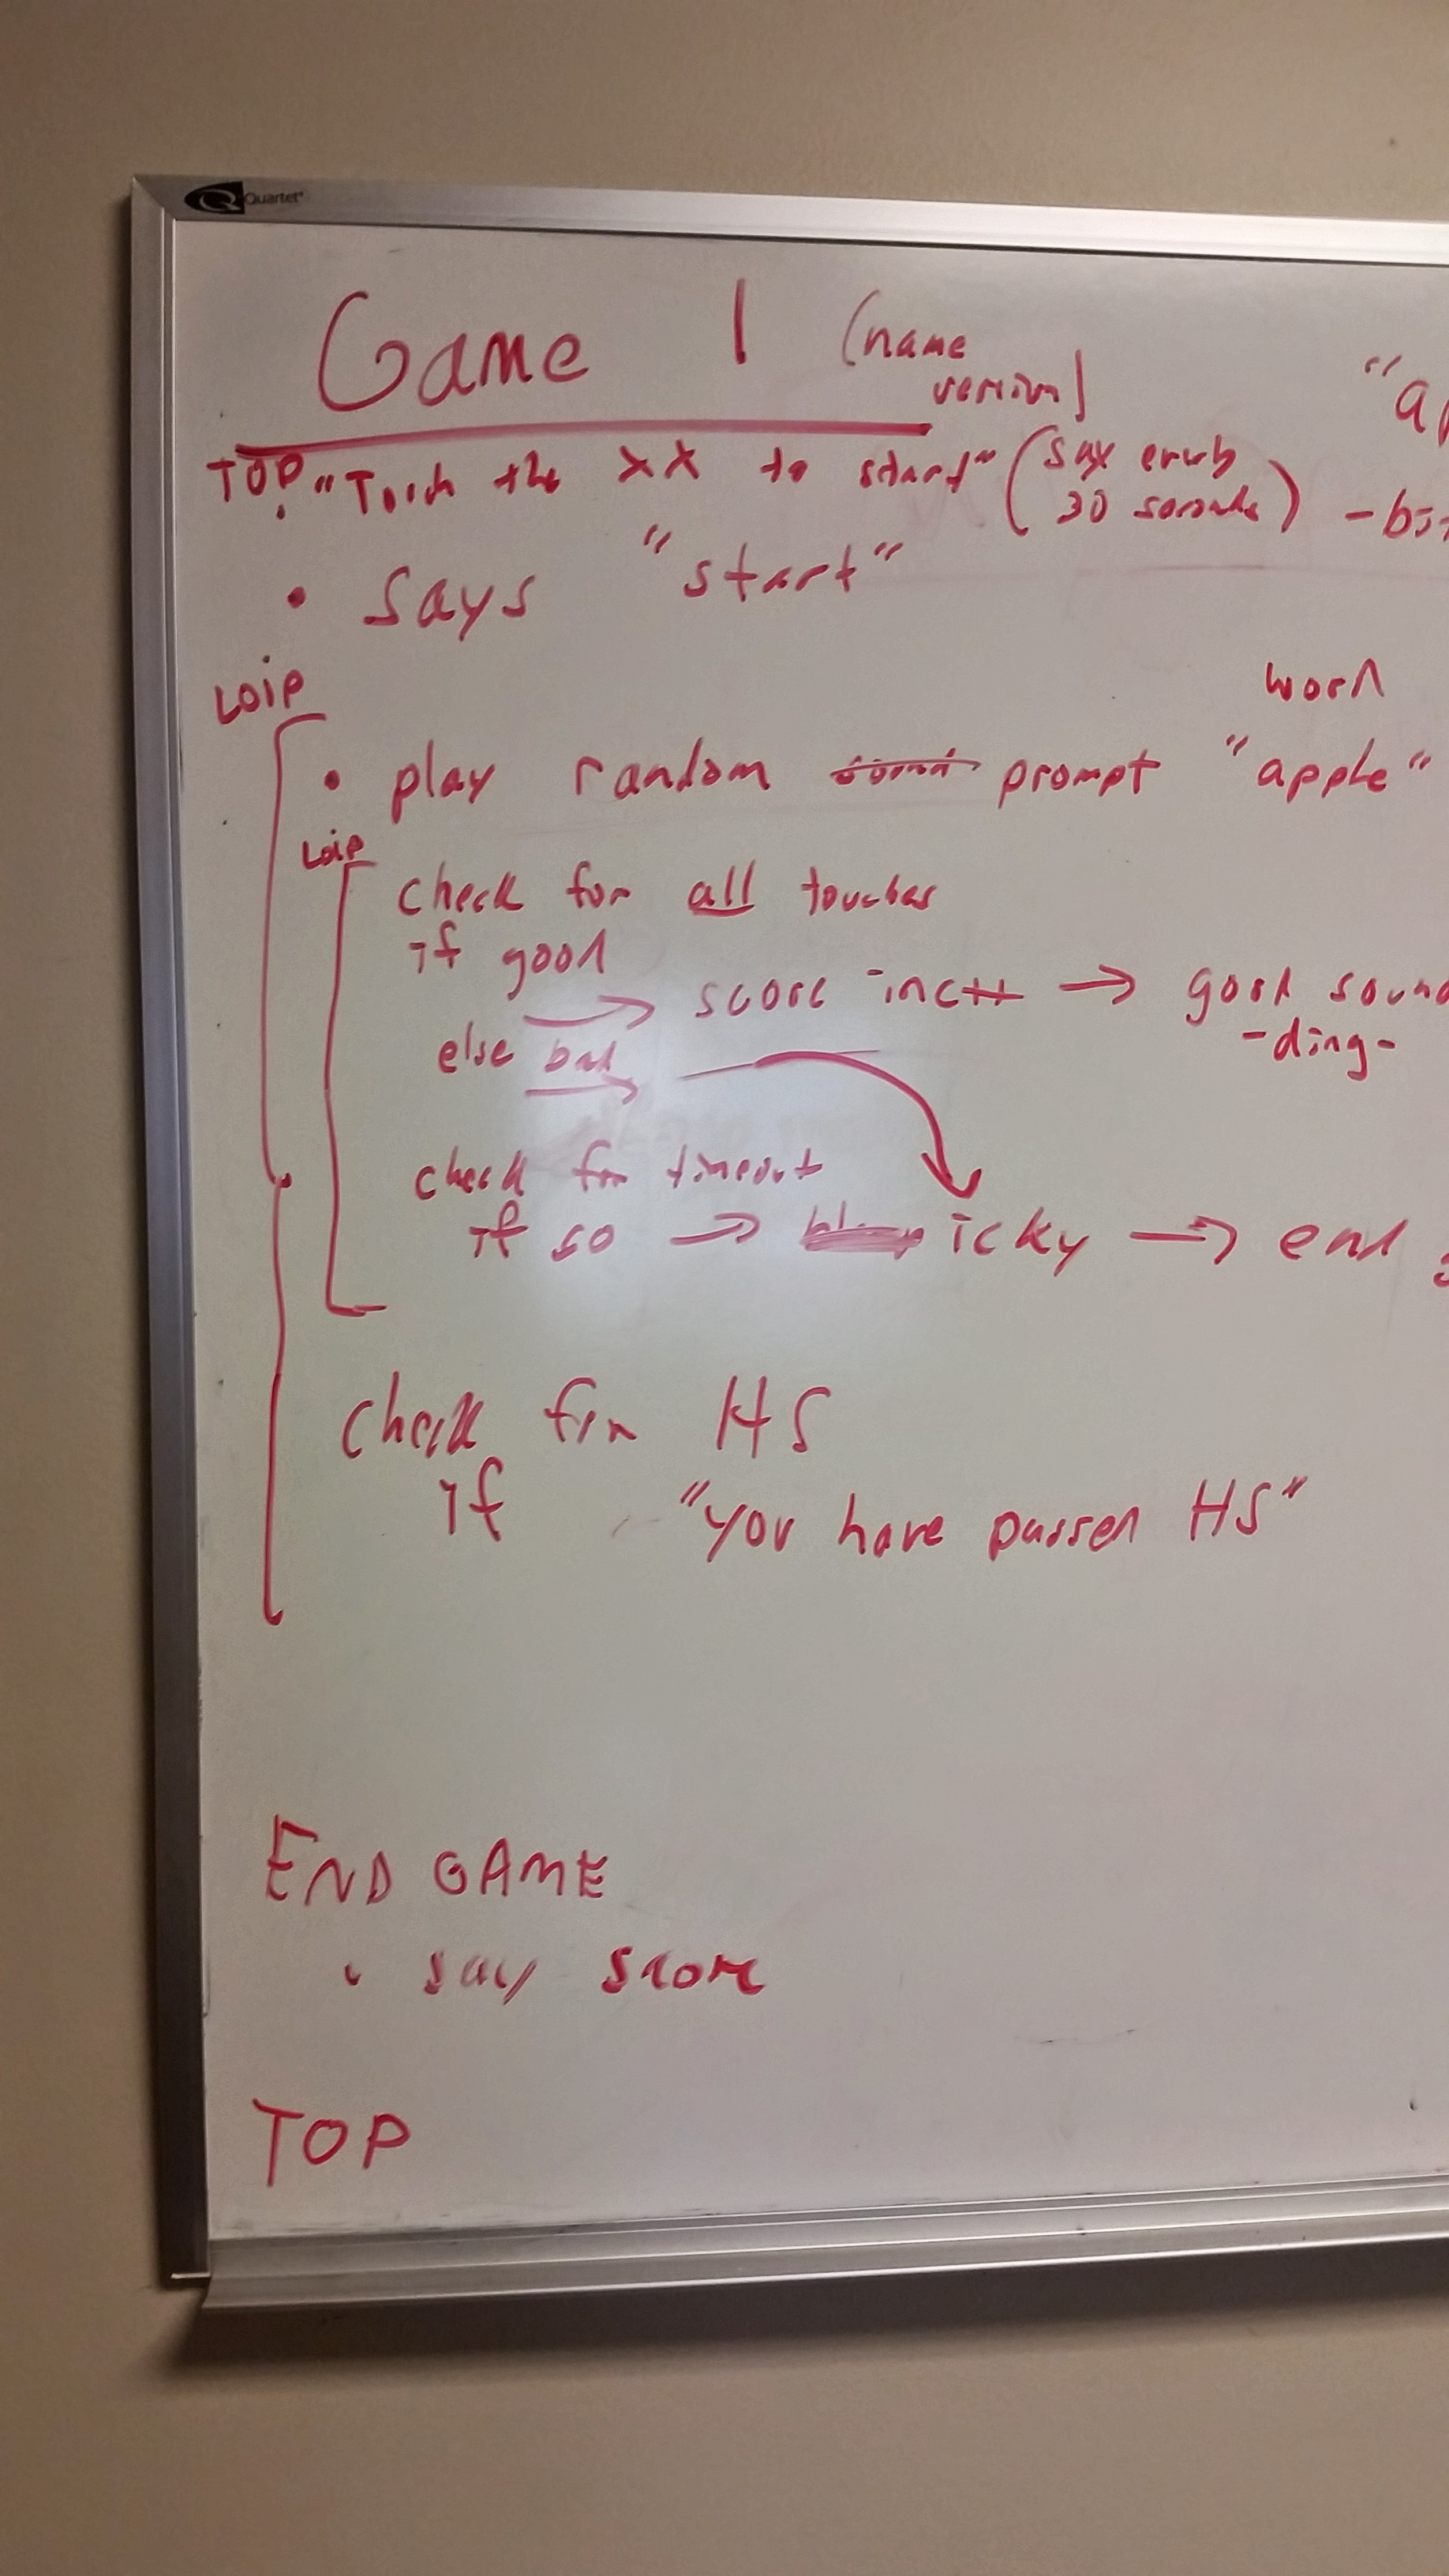 Quartet
Game 1 (name
version)
"ap
TOP "Touch the XX to start" (say every
30 seconds)
• says "start"
Loop
word
• play random sound prompt "apple"
Loop
check for all touches
if good
→ score inc++ → good sound
-ding-
else bad
→
check for timeout
if so → icky → end
Check for HS
if "you have passed HS"
END GAME
• say score
TOP